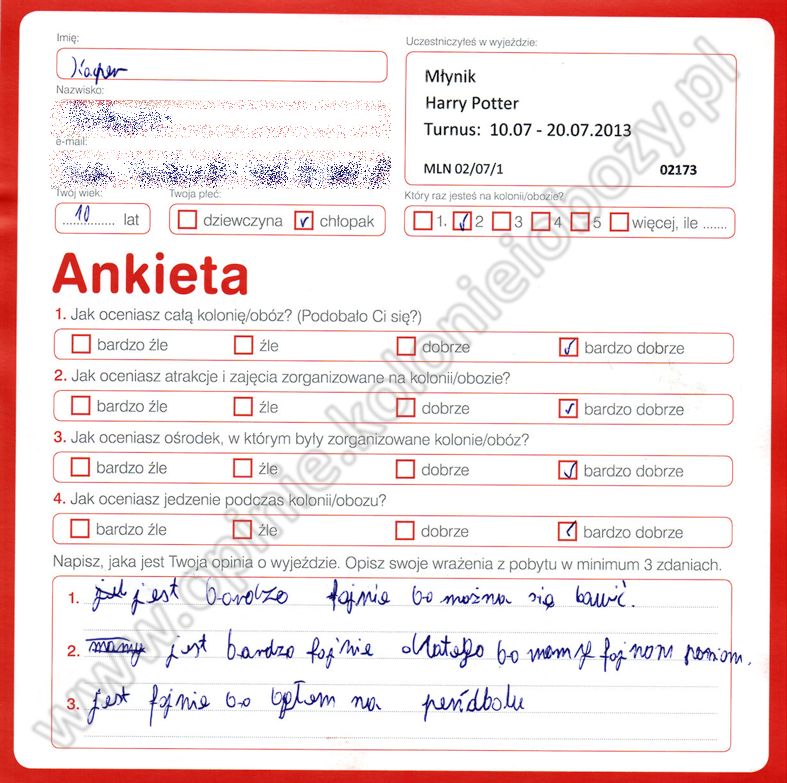 Imię:
Kacper
Nazwisko:
e-mail:
Twój wiek:
10 lat
Twoja płeć:
dziewczyna chłopak
Uczestniczyłeś w wyjeździe:
Młynik
Harry Potter
Turnus: 10.07 - 20.07.2013
MLN 02/07/1 02173
Który raz jesteś na kolonii/obozie?
1. 2 3 4 5 więcej, ile .......
Ankieta
1. Jak oceniasz całą kolonię/obóz? (Podobało Ci się?)
bardzo źle źle dobrze bardzo dobrze
2. Jak oceniasz atrakcje i zajęcia zorganizowane na kolonii/obozie?
bardzo źle źle dobrze bardzo dobrze
3. Jak oceniasz ośrodek, w którym były zorganizowane kolonie/obóz?
bardzo źle źle dobrze bardzo dobrze
4. Jak oceniasz jedzenie podczas kolonii/obozu?
bardzo źle źle dobrze bardzo dobrze
Napisz, jaka jest Twoja opinia o wyjeździe. Opisz swoje wrażenia z pobytu w minimum 3 zdaniach.
1. jest bardzo fajnie bo można się bawić.
2. jest bardzo fajnie dlatego bo mamy fajnom
3. jest fajnie bo byłem na penidbolu
www.opinie.kolonieiobozy.pl